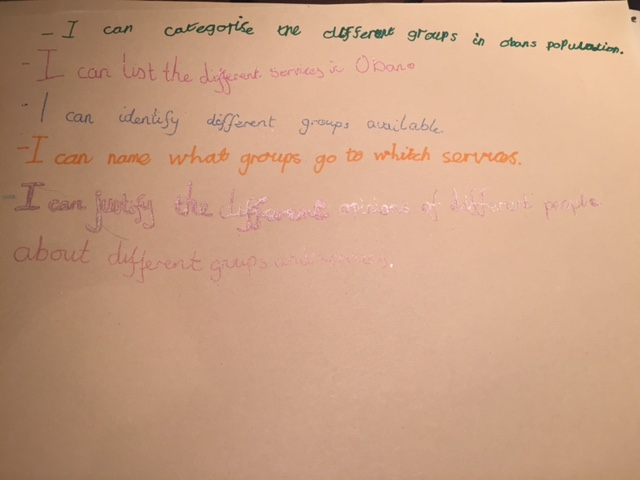 - I can categorise the different groups in obans population.
- I can list the different services in Oban.
- I can identify different groups available.
- I can name what groups go to which services.
- I can justify the different opinions of different people
about different groups and